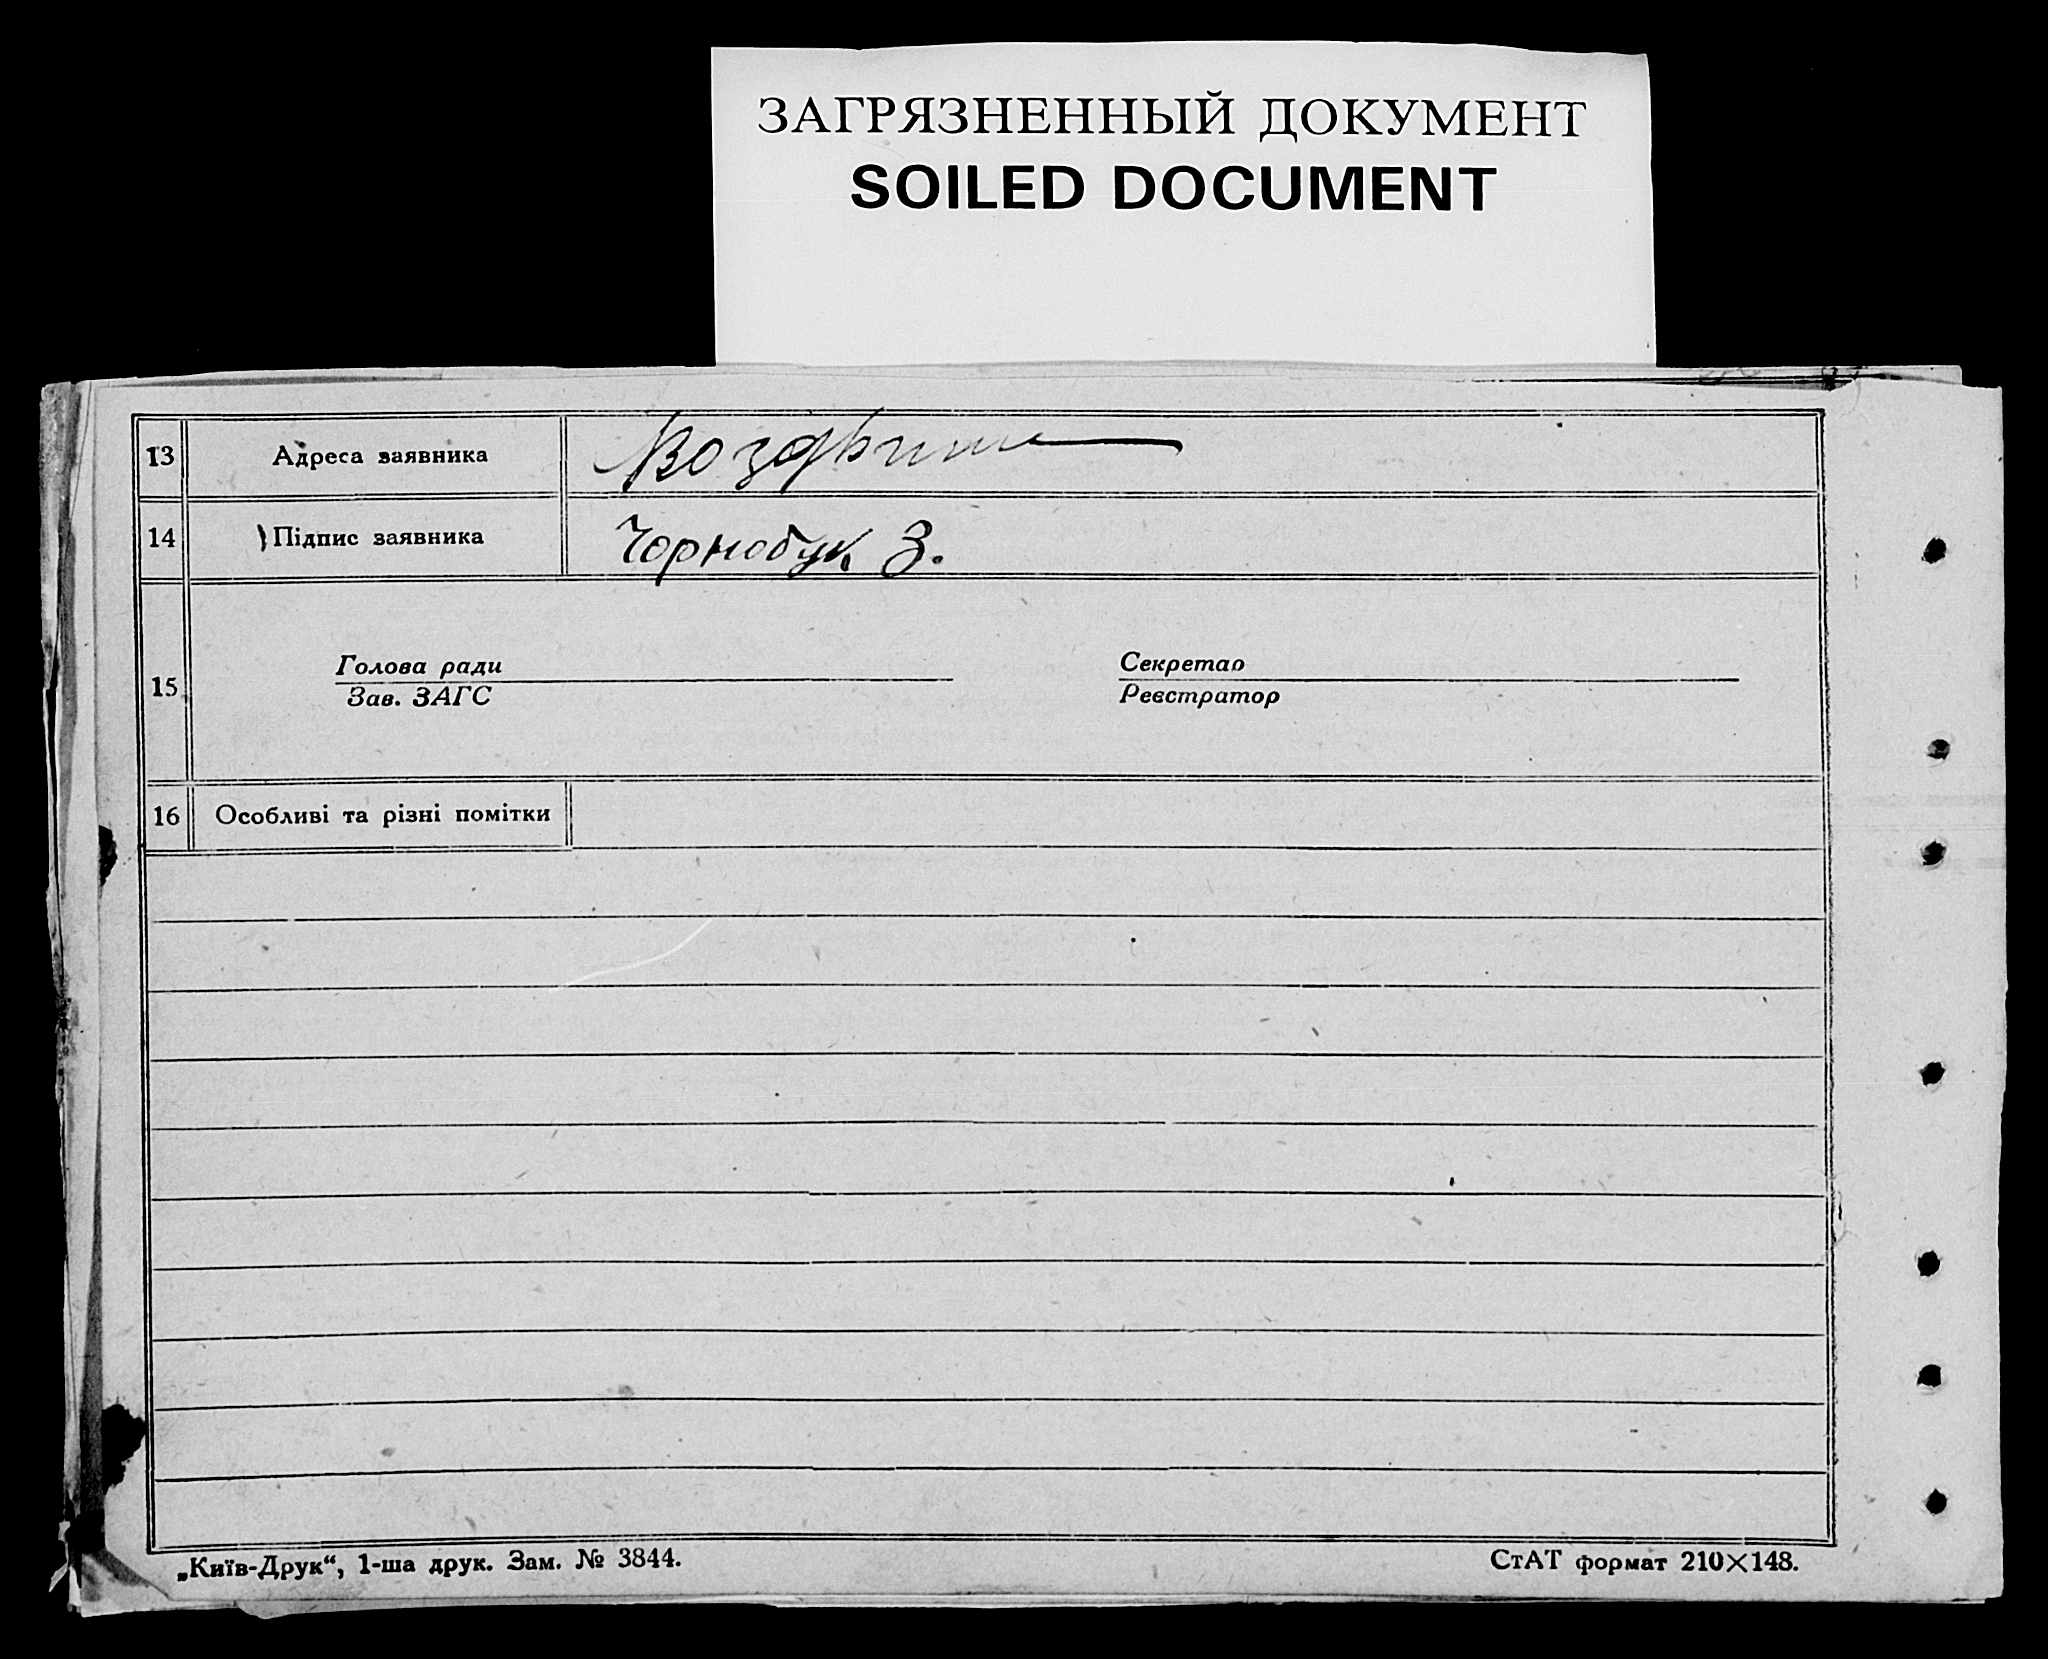 ЗАГРЯЗНЕННЫЙ ДОКУМЕНТ
SOILED DOCUMENT
13 Адреса заявника
14 Підпис заявника Чорнобук З.
15 Голова ради Секретар
Зав. ЗАГС Реєстратор
16 Особливі та різні помітки
„Київ-Друк“, 1-ша друк. Зам. № 3844. СтАТ формат 210×148.